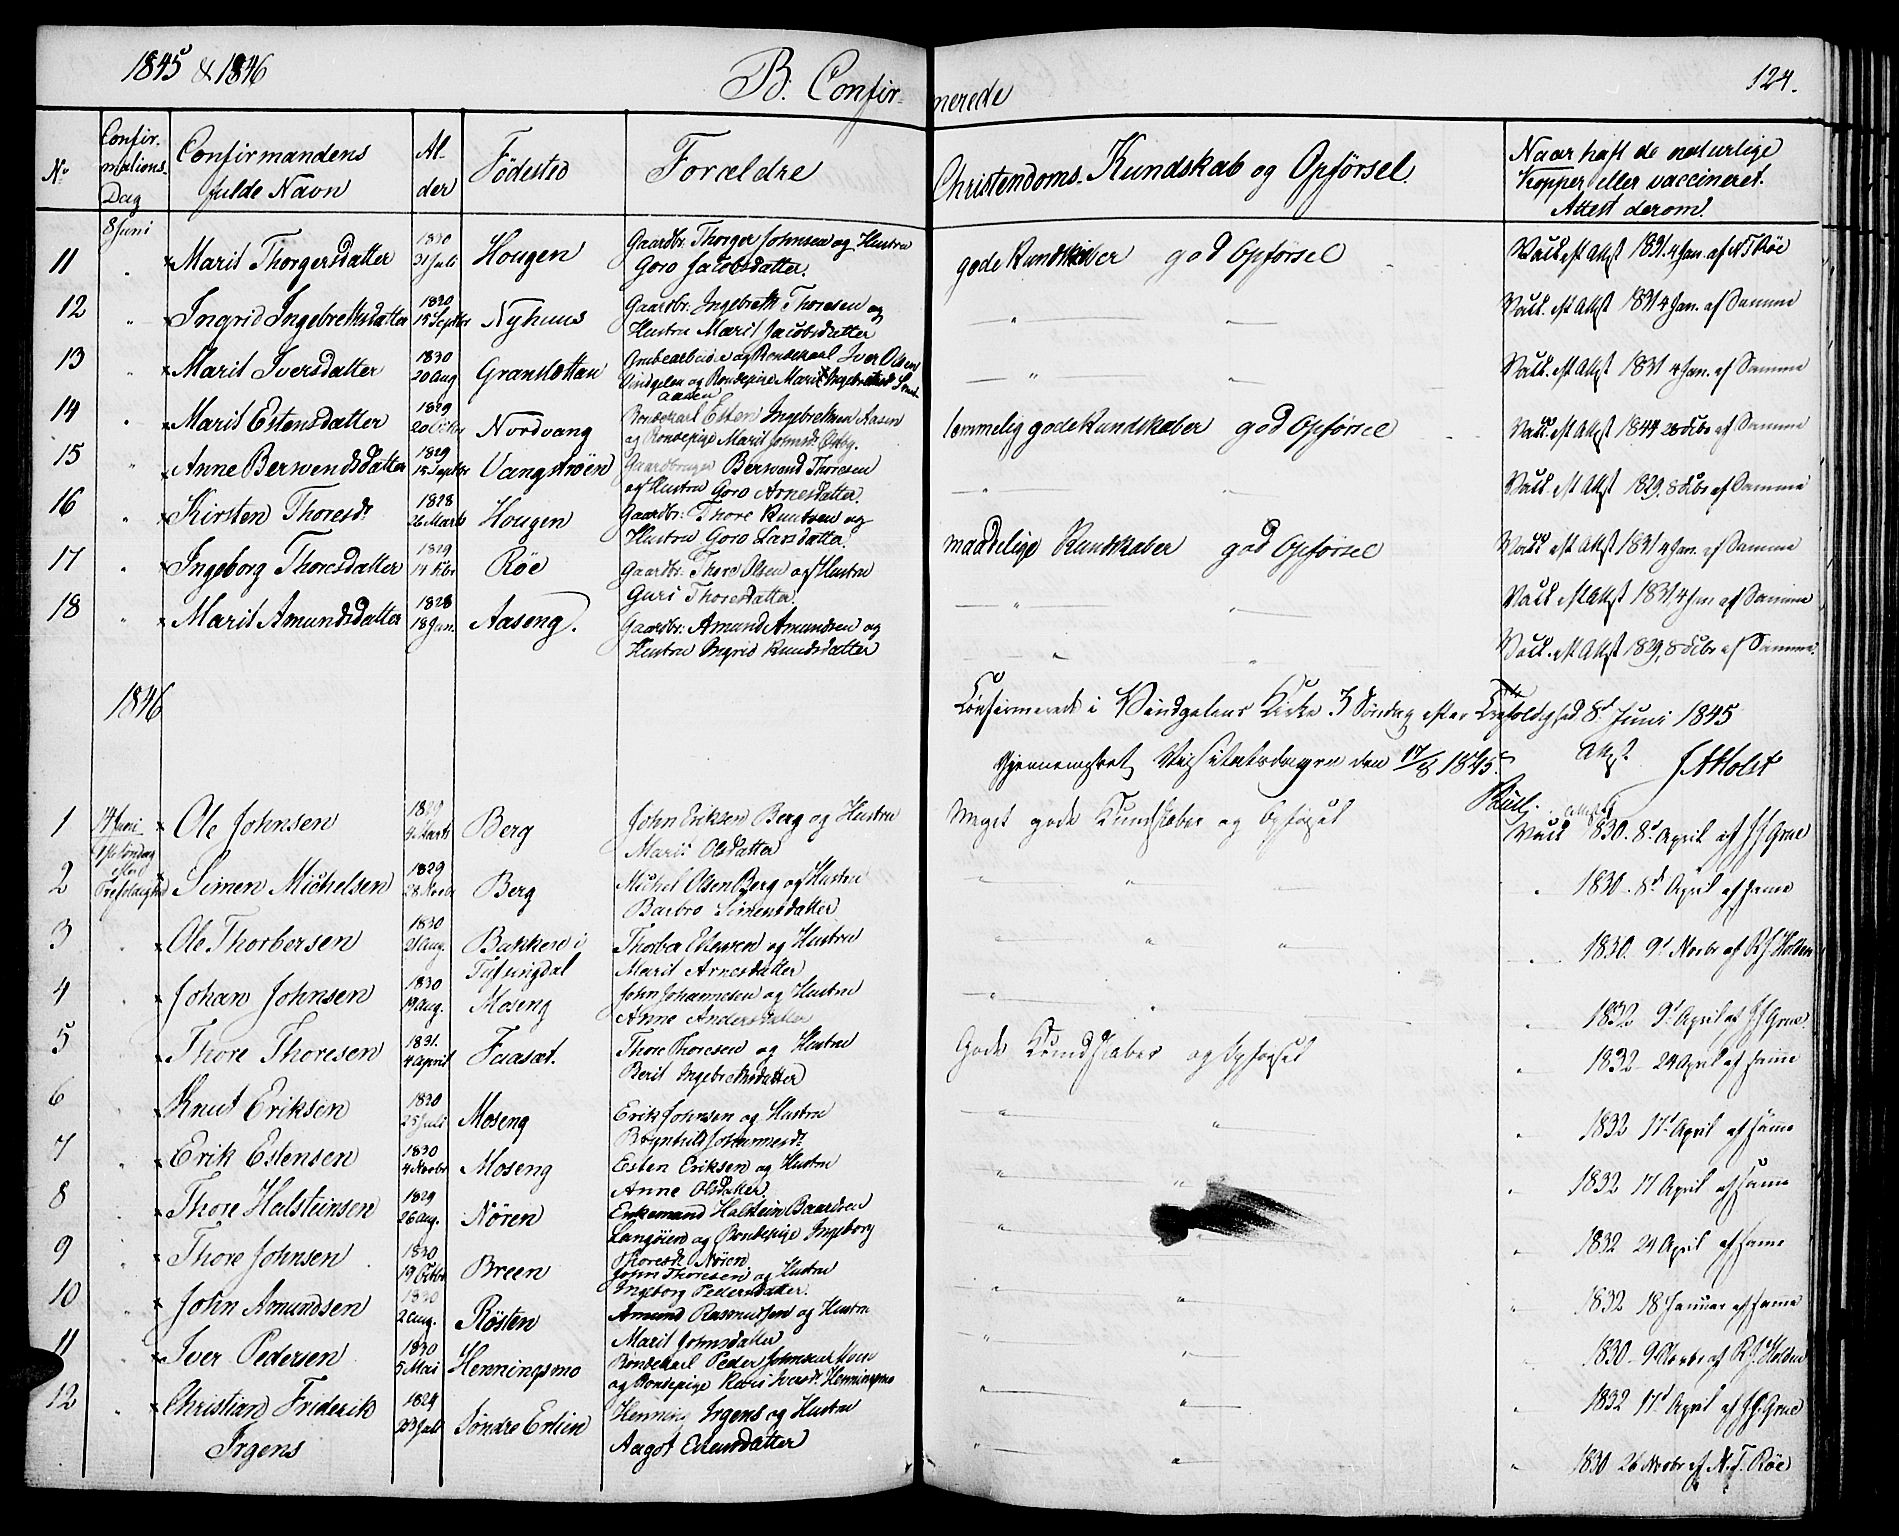 1845 & 1846
B. Confir-
merede
124.
No
Confir-
mations-
Dag
Confirmandens
fulde Navn
Al-
der
Födested
Forældre
Christendoms-Kundskab og Opførsel.
Naar haft de naturlige
Kopper eller vaccineret.
Attest derom.
8 Juni
11 " Marit Thorgersdatter 1830 31 Juli Hougen Gaardbr: Thorger Johnsen og Hustru
Goro Jacobsdatter.
gode Kundskaber god Opførsel
Vacc. est Attest 1831 4 Jan. af N T Röe
12 " Ingrid Ingebrethsdatter 1830 15 Septbr Nyhuus Gaardbr: Ingebreth Thoresen og
Hustru Marit Jacobsdatter
" "
Vacc. est Attst 1831 4 Jan. af Samme
13 " Marit Iversdatter 1830 20 Aug Granslettan Iver Olsen
Vindgelen og Bondepige Marit
aasen
" "
Vacc. est Attst 1831 4 Jan. af Samme
14 " Marit Estensdatter 1829 20 Nordvang Bondekarl Esten Ingebrethsen Aasen
og Bondepige Marit
temmelig gode Kundskaber god Opførsel
Vacc. est Attst 1844 28 af Samme
15 " Anne Berwendsdatter 1829 15 Septbr Vangstrøen Gaardbruger Berwend Thoresen
og Hustru Goro Arnesdatter.
" "
Vacc. est Attst 1829, 8 af Samme
16 " Kirsten Thoresd. 1828 26 Marts Hougen Gaardbr: Thore Knutsen og
Hustru Goro Larsdatter.
maadelige Kundskaber god Opførsel
Vacc. est Attst 1831 4 Jan. af Samme
17 " Ingeborg Thoresdatter 1829 14 Röe Gaardbr: Thore Olsen og Hustru
Guri Thoresdatter.
" "
Vacc. est Attst 1831, 4 Jan af Samme
18 " Marit Amundsdatter 1828 18 Jan. Aaseng. Gaardbr: Amund Amundsen og
Hustru Ingrid Knudsdatter
" "
Vacc. est Attst 1829, 8 af Samme.
1846
Confirmerede i Vindgelens Kirke 3 Søndag efter Trefoldighed 8d Juni 1845
Attst.
Gjennemseet Visitatsdagen den 17/8 1845.
1 14 Juni Ole Johnsen 4 Marts Berg John Eriksen Berg og Hustru
Marit Olsdatter
Meget gode Kundskaber og Opførsel
Vacc 1830. 8d April af J J Grue
2 Søndag
efter
Trefoldighed Simen Michelsen 1829 28 Berg Michel Olsen Berg og Hustru
Barbro Simensdatter
" " "
" 1830. 8d April af same
3 " Ole Thorbersen 1830 21 Aug. Bakken i
Tufsingdal Thorber Estensen og Hustru
Marit Arnesdatter
" " "
" 1830. 9d Novbr af R J Holden
4 " Johan Johnsen 1830 19 Aug. Moseng John Johannesen og Hustru
Anne Andersdatter
" "
" 1832 9d April af J J Grue.
5 " Thore Thoresen 1831. 4 April Faasæt. Thore Thoresen og Hustru
Berit Ingebrethsdatter
Gode Kundskaber og Opførsel
" 1832 24 April af same
6 " Knut Eriksen 1830 25 Juli Moseng Erik Johnsen og Hustru
Brynhild Johannesd.
" "
" 1832 17d April af same
7 " Erik Estensen 1830 4 Novbr Moseng Esten Eriksen og Hustru
Anne Olsdatter
" "
" 1832 17 April af same
8 " Thore Halsteinsen 1829 26 Aug. Nören Enkemand Halstein Baardsen
Langöien og Bondepige Ingeborg
Thoresd. Nören.
"
" 1832 24 April af same
9 " Thore Johnsen 1830 19 Octbr Breen John Thoresen og Hustru
Ingeborg Pedersdatter.
" "
" 1832 18 Januar af same
10 " John Amundsen 1830 2 Aug. Rösten Amund Rasmussen og Hustru
Marit Johnsdatter
" "
" 1830 9 Novbr af R J. Holden
11 " Iver Pedersen 1830 5 Mai Henningsmo Bondekarl Peder Johnsen
og Bondepige Kari Iversd. Henningsmo
" "
" 1832 17d April af J J. Grue
12 " Christian Friderik
Irgens 1829 23 Juli Søndre Erlien Henning Irgens og Hustru
Aagot Evensdatter
" "
" 1830 26 Novbr af N. T. Röe